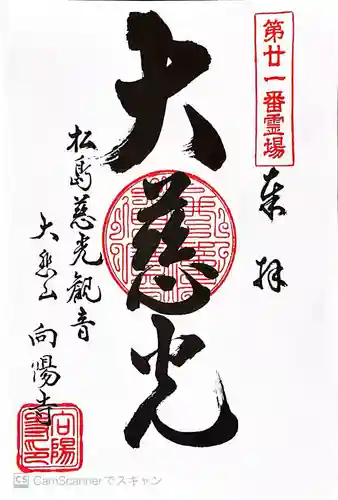 第廿一番霊場
奉拝
大慈光
松島慈光観音
大悲山 向陽寺
向陽寺印
CS CamScannerでスキャン